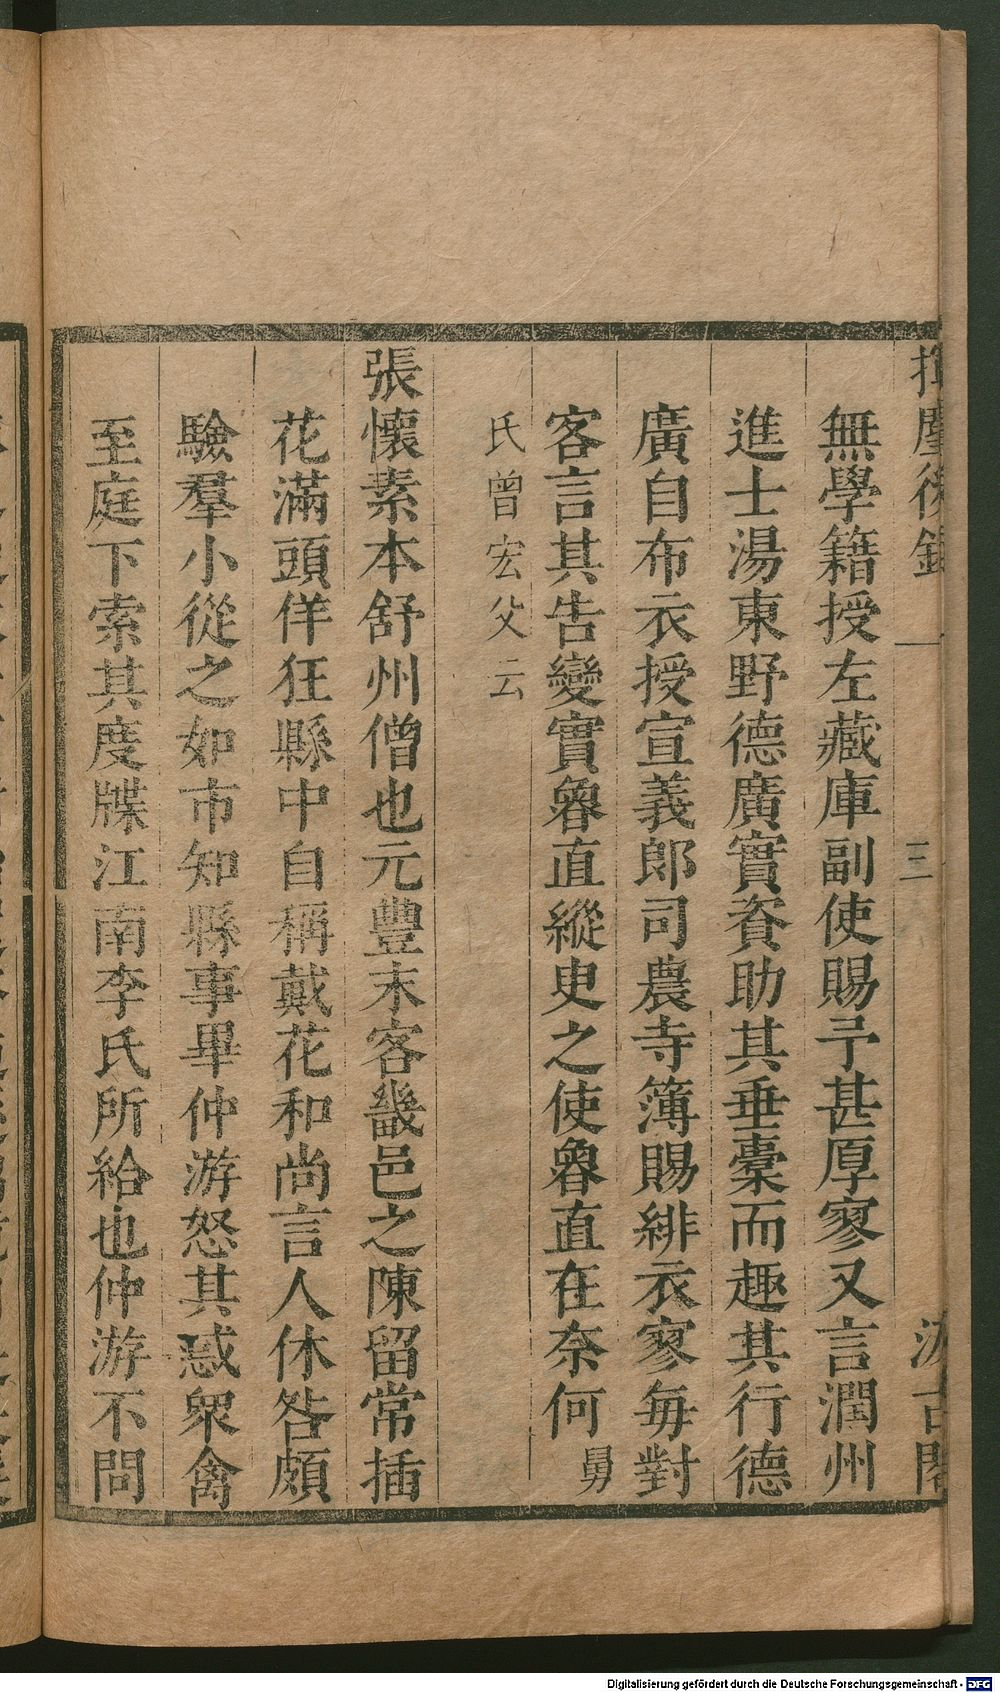 揮麈後錄 一 三 汲古閣
無學籍授左藏庫副使賜予甚厚寥又言潤州
進士湯東野德廣實資助其垂槖而趣其行德
廣自布衣授宣義郎司農寺簿賜緋衣寥每對
客言其告變實魯直縱臾之使魯直在奈何舅
氏曾宏父云
張懷素本舒州僧也元豐末客畿邑之陳留常插
花滿頭佯狂縣中自稱戴花和尚言人休咎頗
驗羣小從之如市知縣事畢仲游怒其惑眾禽
至庭下索其度牒江南李氏所給也仲游不問
Digitalisierung gefördert durch die Deutsche Forschungsgemeinschaft - DFG